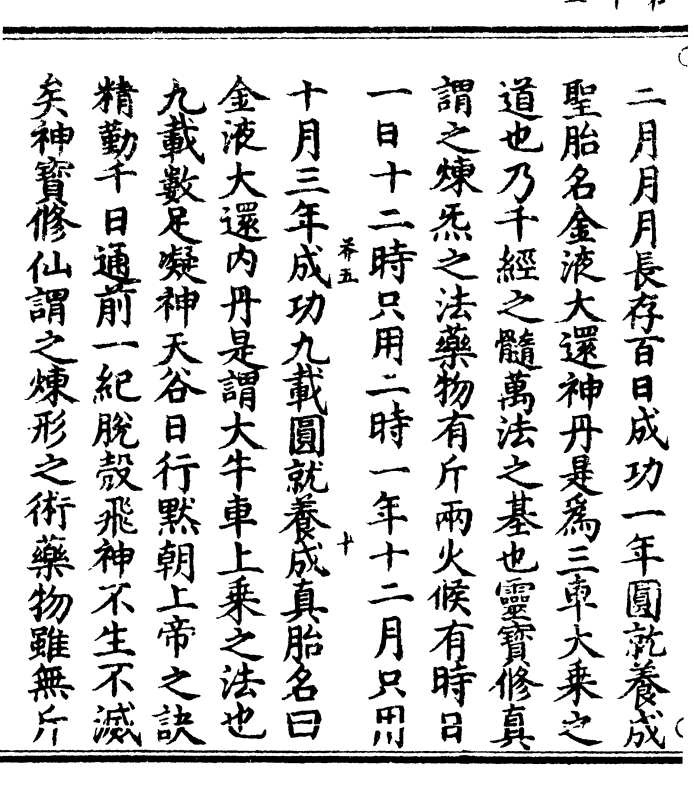 二月月月長存百日成功一年圓就養成
聖胎名金液大還神丹是爲三車大乘之
道也乃千經之髓萬法之基也靈寶修真
謂之煉炁之法藥物有斤兩火候有時日
一日十二時只用二時一年十二月只用
莽五 十
十月三年成功九載圓就養成真胎名曰
金液大還內丹是謂大牛車上乘之法也
九載數足凝神天谷日行默朝上帝之訣
精勤千日通前一紀脫殼飛神不生不滅
矣神寶修仙謂之煉形之術藥物雖無斤